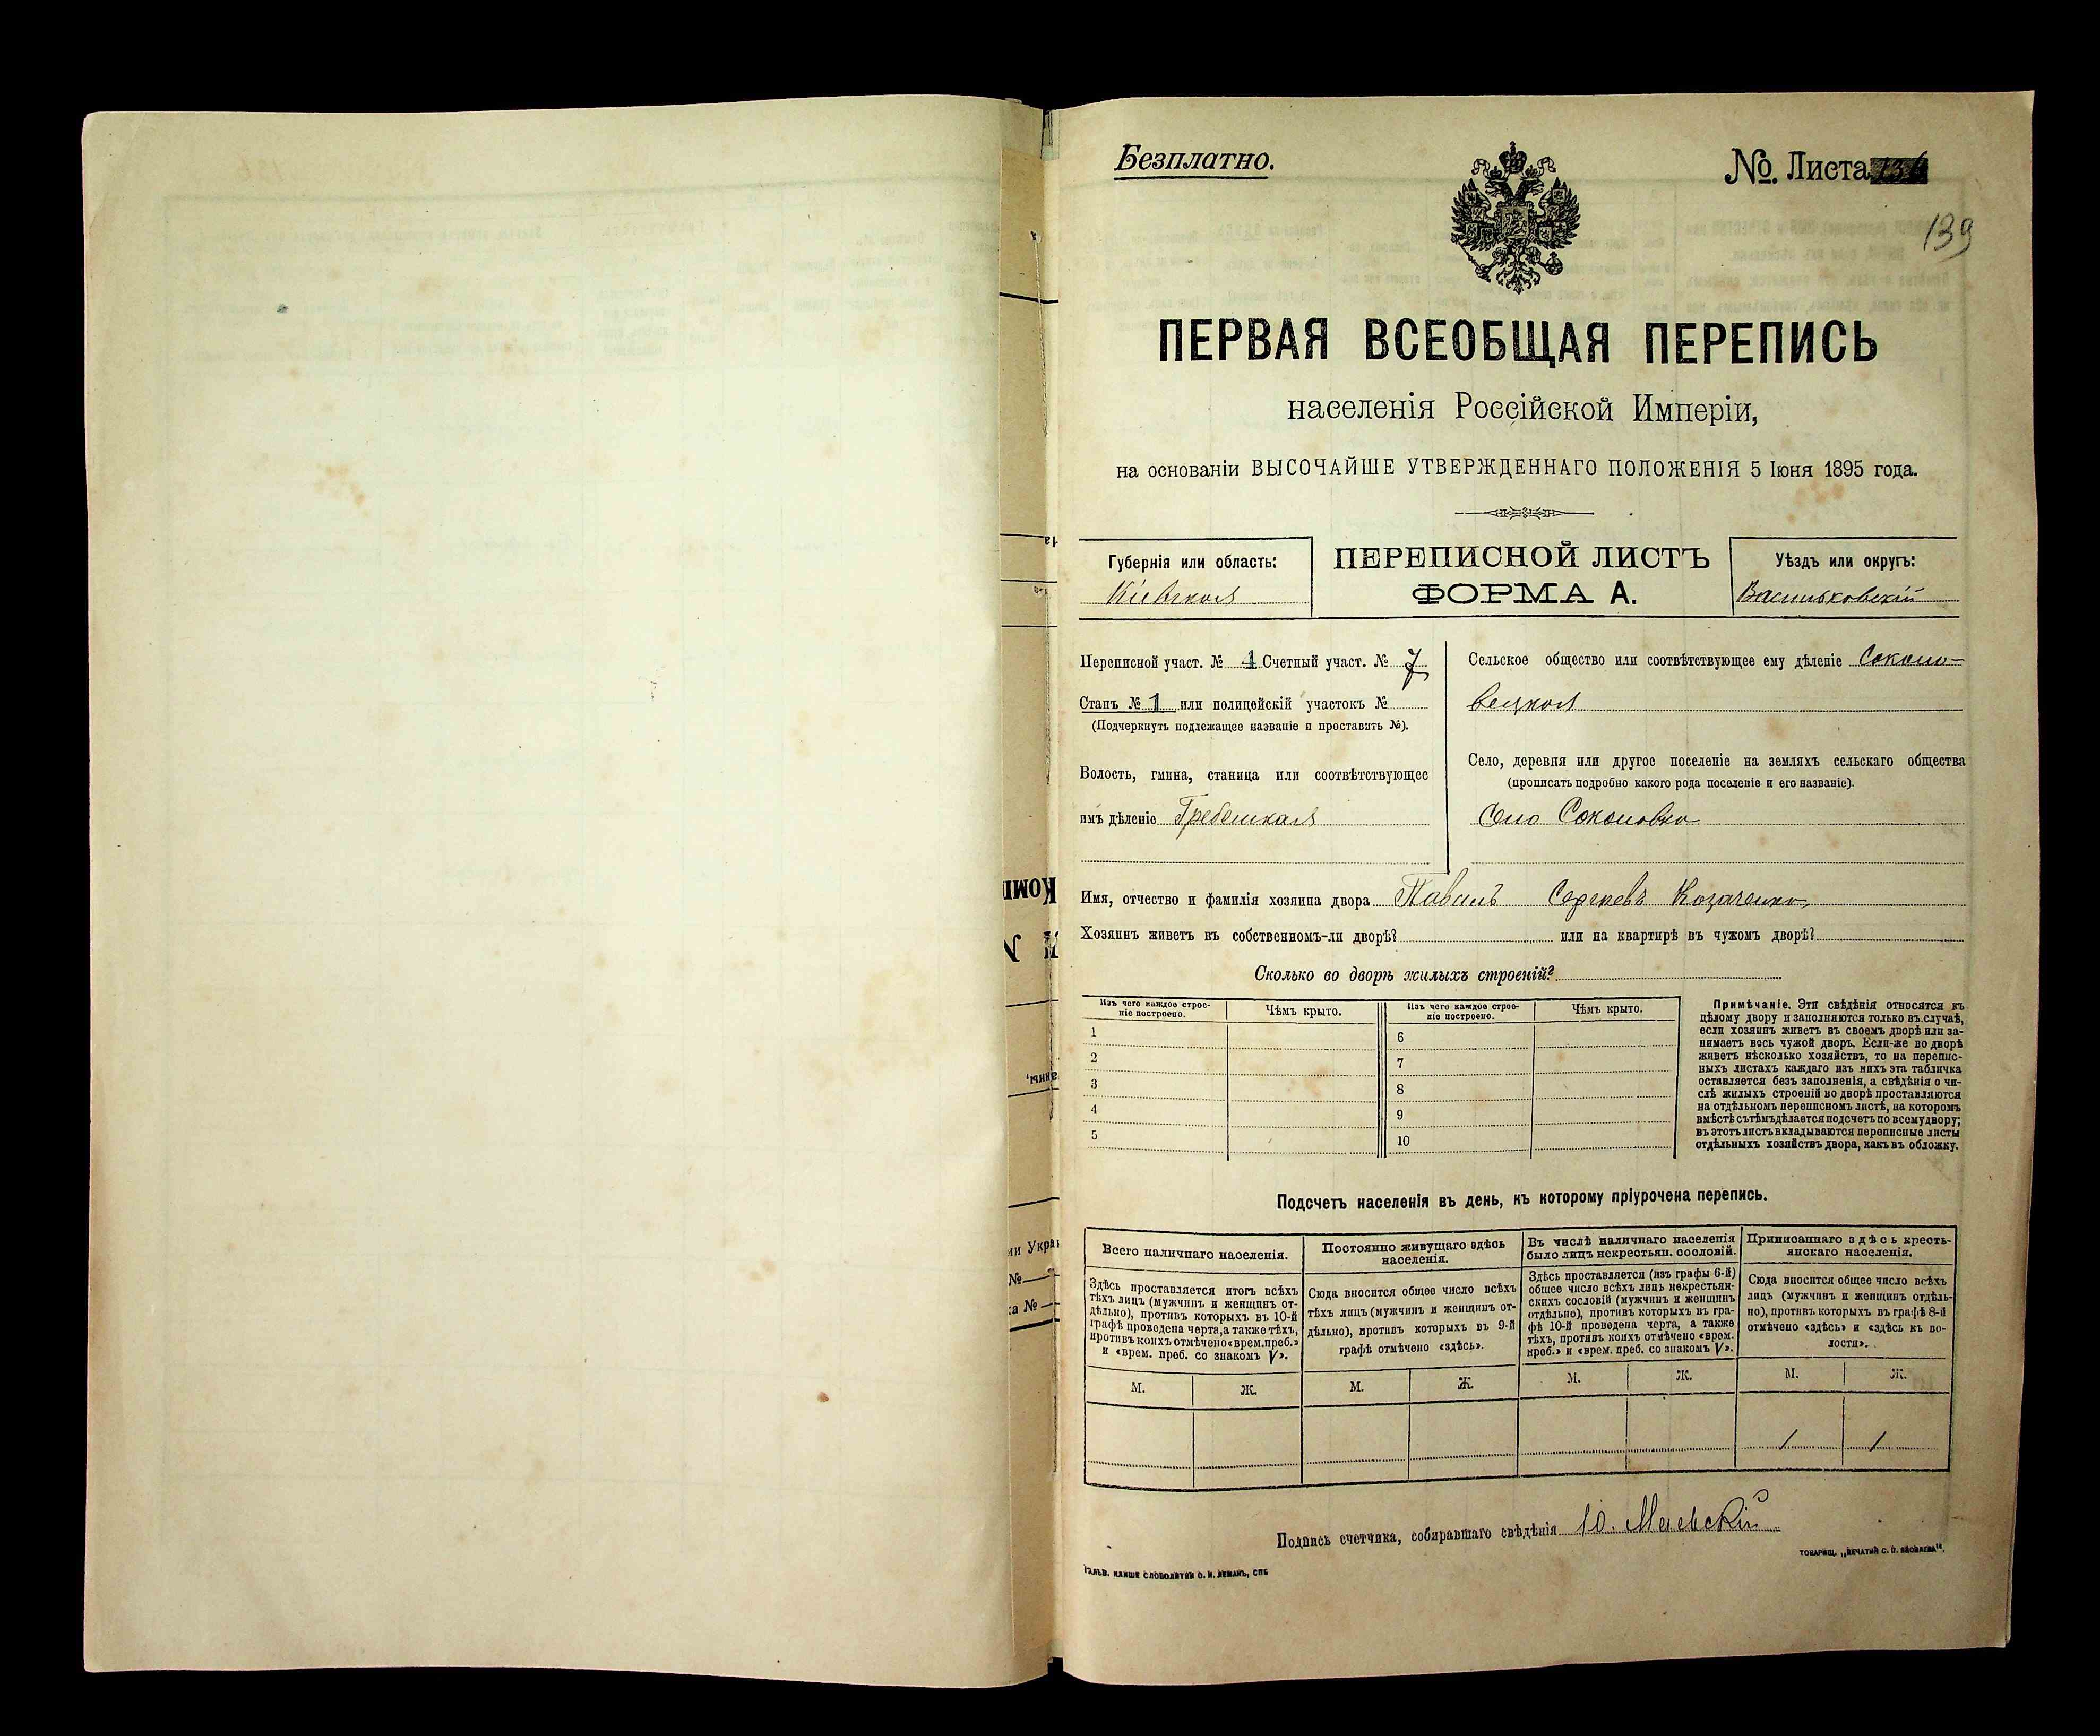 Безплатно.
№. Листа
139
ПЕРВАЯ ВСЕОБЩАЯ ПЕРЕПИСЬ
населенія Россійской Имперіи,
на основаніи ВЫСОЧАЙШЕ УТВЕРЖДЕННАГО ПОЛОЖЕНІЯ 5 Іюня 1895 года.
Губернія или область:
Кіевская
ПЕРЕПИСНОЙ ЛИСТЪ
ФОРМА А.
Уѣздъ или округъ:
Васильковскій
Переписной участ. № 1 Счетный участ. № 7
Станъ № 1 или полицейскій участокъ №
(Подчеркнуть подлежащее названіе и проставить №).
Волость, гмина, станица или соотвѣтствующее
имъ дѣленіе Гребенская
Сельское общество или соотвѣтствующее ему дѣленіе Соколо-
вецкая
Село, деревня или другое поселеніе на земляхъ сельскаго общества
(прописать подробно какого рода поселеніе и его названіе).
Село Соколовка
Имя, отчество и фамилія хозяина двора Павелъ Сергѣевъ Козаченко
Хозяинъ живетъ въ собственномъ-ли дворѣ? или на квартирѣ въ чужомъ дворѣ?
Сколько во дворѣ жилыхъ строеній?
Изъ чего каждое строе-
ніе построено.
Чѣмъ крыто.
Изъ чего каждое строе-
ніе построено.
Чѣмъ крыто.
1
2
3
4
5
6
7
8
9
10
Примѣчаніе. Эти свѣдѣнія относятся къ
цѣлому двору и заполняются только въ случаѣ,
если хозяинъ живетъ въ своемъ дворѣ или за-
нимаетъ весь чужой дворъ. Если-же во дворѣ
живетъ нѣсколько хозяйствъ, то на перепис-
ныхъ листахъ каждаго изъ нихъ эта табличка
оставляется безъ заполненія, а свѣдѣнія о чи-
слѣ жилыхъ строеній во дворѣ проставляются
на отдѣльномъ переписномъ листѣ, на которомъ
вмѣстѣ съ тѣмъ дѣлается подсчетъ по всему двору;
въ этотъ листъ вкладываются переписные листы
отдѣльныхъ хозяйствъ двора, какъ въ обложку.
Подсчетъ населенія въ день, къ которому пріурочена перепись.
Всего наличнаго населенія.
Здѣсь проставляется итогъ всѣхъ
тѣхъ лицъ (мужчинъ и женщинъ от-
дѣльно), противъ которыхъ въ 10-й
графѣ проведена черта, а также тѣхъ,
противъ коихъ отмѣчено «врем. преб.»
и «врем. преб. со знакомъ V».
Постоянно живущаго здѣсь
населенія.
Сюда вносится общее число всѣхъ
тѣхъ лицъ (мужчинъ и женщинъ от-
дѣльно), противъ которыхъ въ 9-й
графѣ отмѣчено «здѣсь».
Въ числѣ наличнаго населенія
было лицъ некрестьян. сословій.
Здѣсь проставляется (изъ графы 6-й)
общее число всѣхъ лицъ некрестьян-
скихъ сословій (мужчинъ и женщинъ
отдѣльно), противъ которыхъ въ гра-
фѣ 10-й проведена черта, а также
тѣхъ, противъ коихъ отмѣчено «врем.
преб.» и «врем. преб. со знакомъ V».
Приписаннаго здѣсь кресть-
янскаго населенія.
Сюда вносится общее число всѣхъ
лицъ (мужчинъ и женщинъ отдѣль-
но), противъ которыхъ въ графѣ 8-й
отмѣчено «здѣсь» и «здѣсь къ во-
лости».
М. Ж. М. Ж. М. Ж. М. Ж.
1 1
Подпись счетчика, собиравшаго свѣдѣнія Ю. Маевскій
ТОВАРИЩ. „ПЕЧАТНЯ С. П. ЯКОВЛЕВА“.
ГАЛЬВ. КЛИШЕ СЛОВОЛИТНИ О. И. ЛЕМАНЪ, СПБ